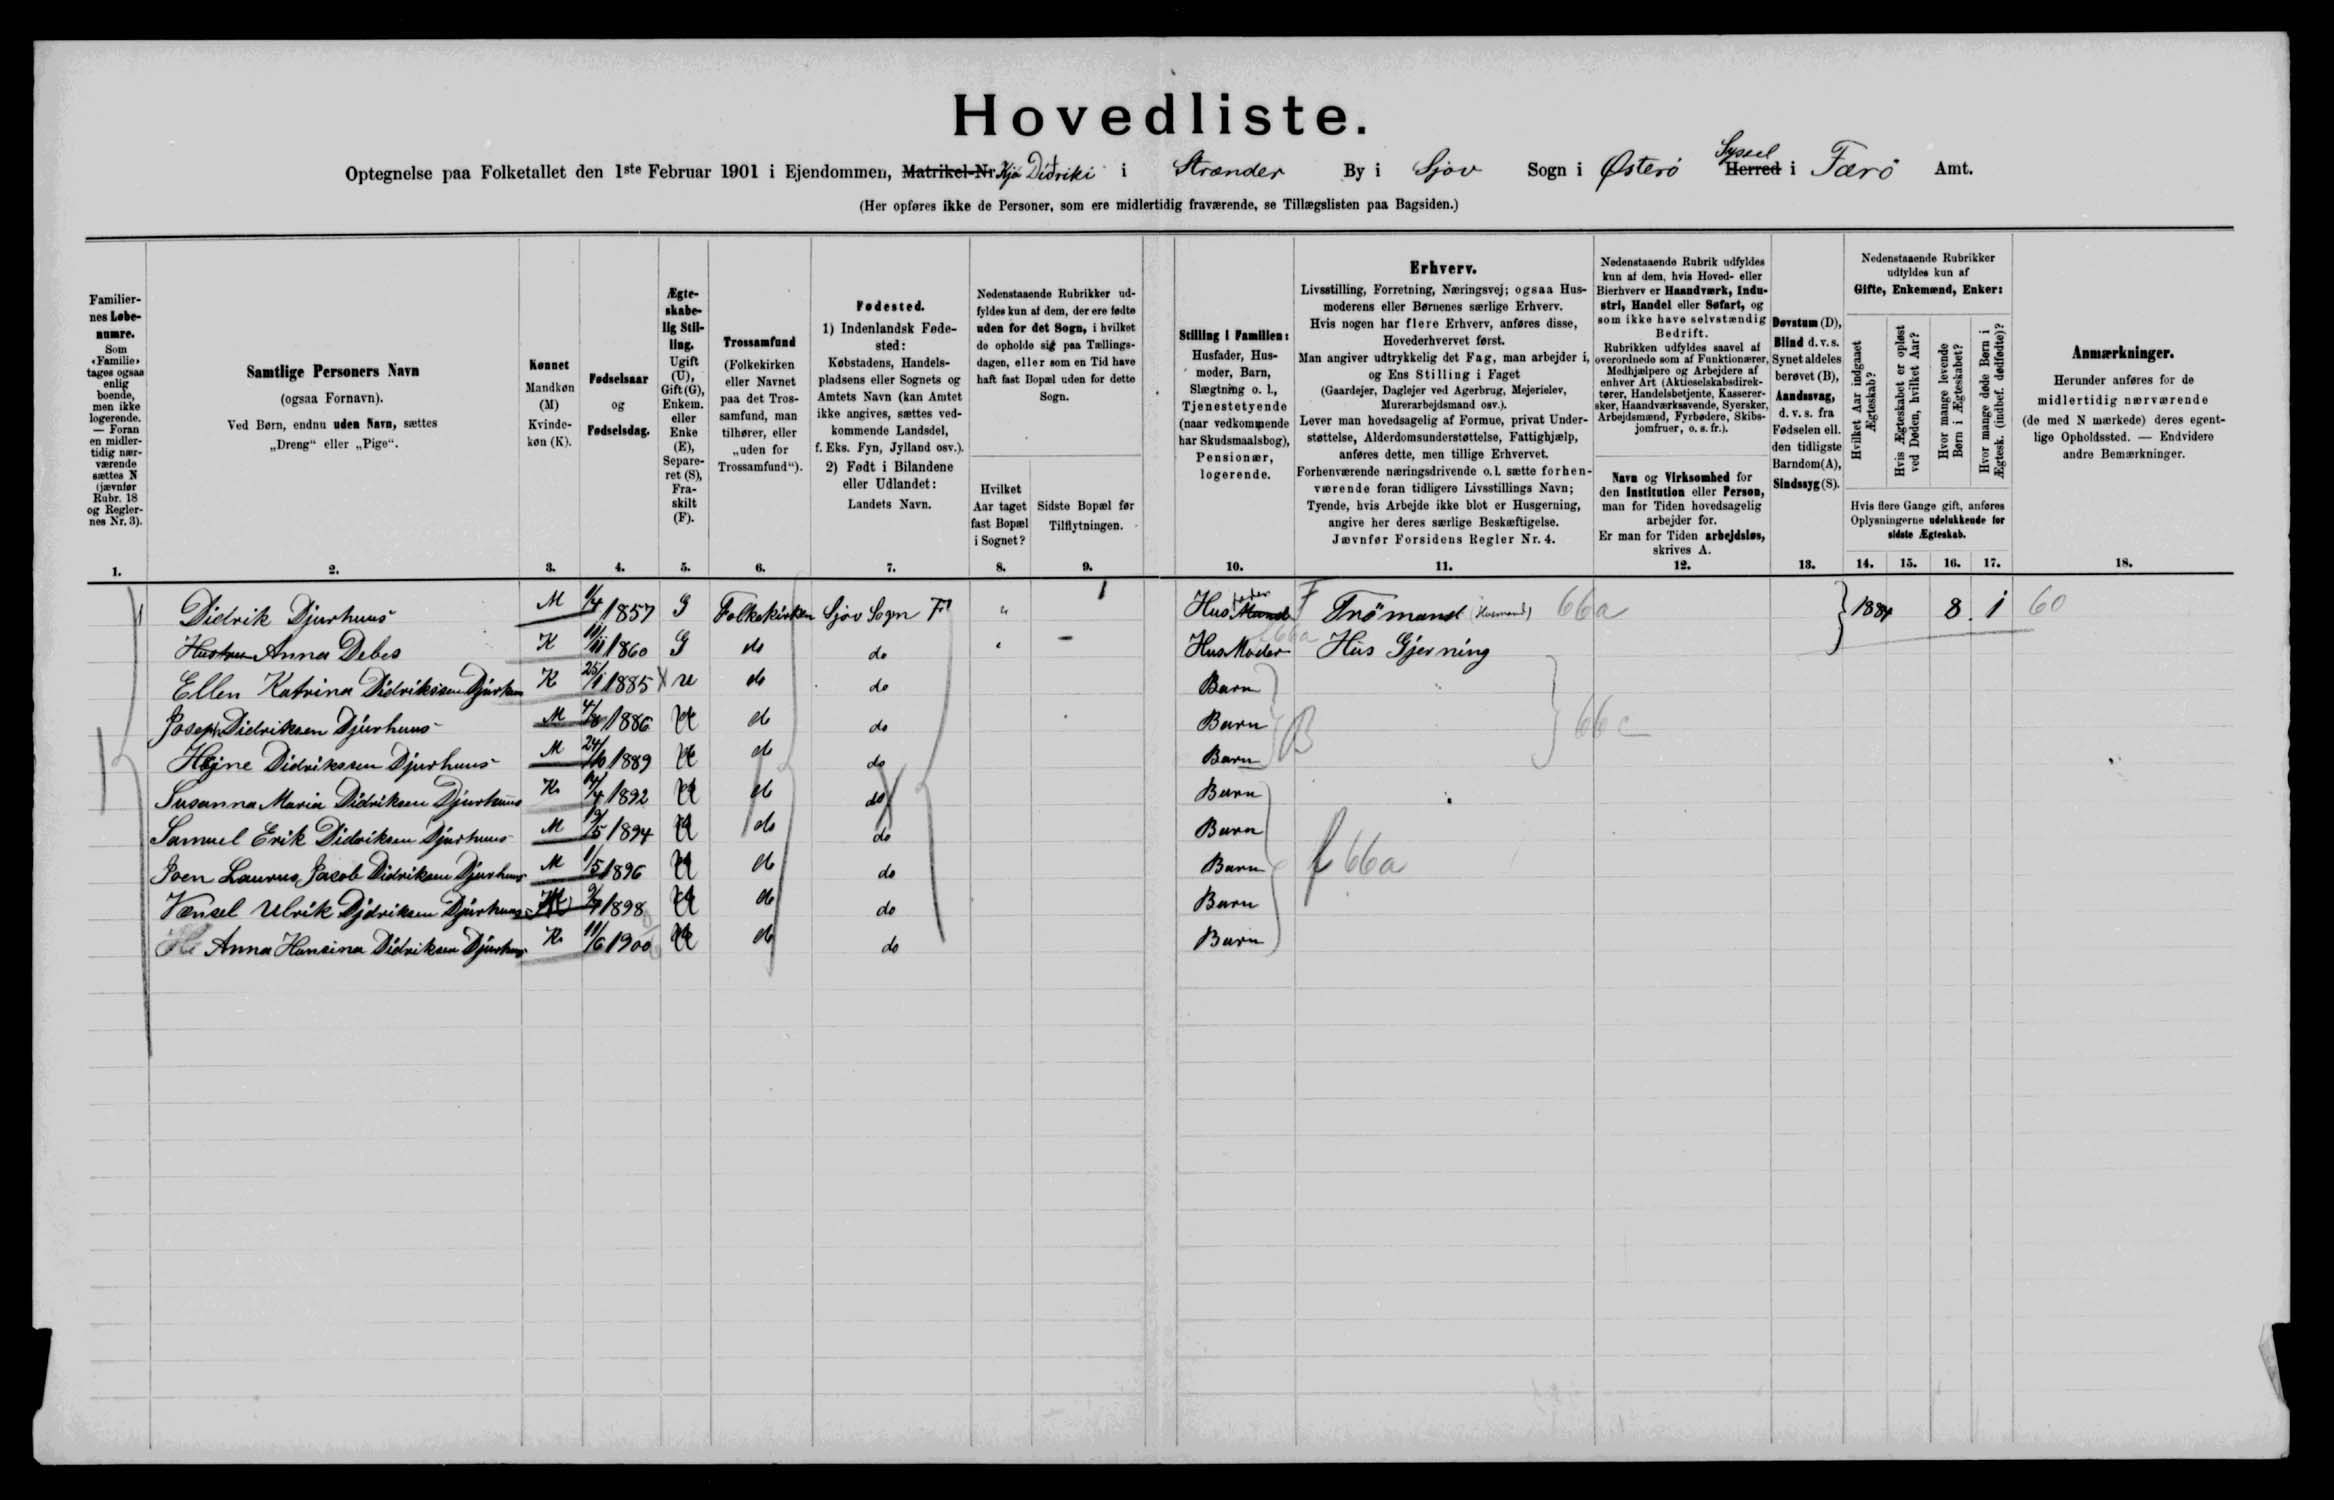 Hovedliste.
Optegnelse paa Folketallet den 1ste Februar 1901 i Ejendommen, Matrikel-Nr. Hjá Didriki i Strænder By i Sjov Sogn i Østerö Herred Syssel i Færö Amt.
(Her opføres ikke de Personer, som ere midlertidig fraværende, se Tillægslisten paa Bagsiden.)
Familiernes Løbenumre. Som «Familie» tages ogsaa enlig boende, men ikke logerende. — Foran en midlertidig nærværende sættes N (jævnfør Rubr. 18 og Reglernes Nr. 3).
Samtlige Personers Navn (ogsaa Fornavn). Ved Børn, endnu uden Navn, sættes „Dreng“ eller „Pige“.
Kønnet Mandkøn (M) Kvindekøn (K).
Fødselsaar og Fødselsdag.
Ægteskabelig Stilling. Ugift (U), Gift (G), Enkem. eller Enke (E), Separeret (S), Fraskilt (F).
Trossamfund (Folkekirken eller Navnet paa det Trossamfund, man tilhører, eller „uden for Trossamfund“).
Fødested. 1) Indenlandsk Fødested: Købstadens, Handelspladsens eller Sognets og Amtets Navn (kan Amtet ikke angives, sættes vedkommende Landsdel, f. Eks. Fyn, Jylland osv.). 2) Født i Bilandene eller Udlandet: Landets Navn.
Nedenstaaende Rubrikker udfyldes kun af dem, der ere fødte uden for det Sogn, i hvilket de opholde sig paa Tællingsdagen, eller som en Tid have haft fast Bopæl uden for dette Sogn.
Hvilket Aar taget fast Bopæl i Sognet?
Sidste Bopæl før Tilflytningen.
Stilling i Familien: Husfader, Husmoder, Barn, Slægtning o. l., Tjenestetyende (naar vedkommende har Skudsmaalsbog), Pensionær, logerende.
Erhverv.
Livsstilling, Forretning, Næringsvej; ogsaa Husmoderens eller Børnenes særlige Erhverv.
Hvis nogen har flere Erhverv, anføres disse, Hovederhvervet først.
Man angiver udtrykkelig det Fag, man arbejder i, og Ens Stilling i Faget
(Gaardejer, Daglejer ved Agerbrug, Mejerielev, Murerarbejdsmand osv.).
Lever man hovedsagelig af Formue, privat Understøttelse, Alderdomsunderstøttelse, Fattighjælp, anføres dette, men tillige Erhvervet.
Forhenværende næringsdrivende o. l. sætte forhenværende foran tidligere Livsstillings Navn;
Tyende, hvis Arbejde ikke blot er Husgerning, angive her deres særlige Beskæftigelse.
Jævnfør Forsidens Regler Nr. 4.
Nedenstaaende Rubrik udfyldes kun af dem, hvis Hoved- eller Bierhverv er Haandværk, Industri, Handel eller Søfart, og som ikke have selvstændig Bedrift.
Rubrikken udfyldes saavel af overordnede som af Funktionærer, Medhjælpere og Arbejdere af enhver Art (Aktieselskabsdirektører, Handelsbetjente, Kasserersker, Haandværkssvende, Syersker, Arbejdsmænd, Fyrbødere, Skibsjomfruer, o. s. fr.).
Navn og Virksomhed for den Institution eller Person, man for Tiden hovedsagelig arbejder for.
Er man for Tiden arbejdsløs, skrives A.
Døvstum (D), Blind d. v. s. Synet aldeles berøvet (B), Aandssvag, d. v. s. fra Fødselen ell. den tidligste Barndom (A), Sindssyg (S).
Nedenstaaende Rubrikker udfyldes kun af Gifte, Enkemænd, Enker:
Hvilket Aar indgaaet Ægteskab?
Hvis Ægteskabet er opløst ved Døden, hvilket Aar?
Hvor mange levende Børn i Ægteskabet?
Hvor mange døde Børn i Ægtesk. (indbef. dødfødte)?
Hvis flere Gange gift, anføres Oplysningerne udelukkende for sidste Ægteskab.
Anmærkninger. Herunder anføres for de midlertidig nærværende (de med N mærkede) deres egentlige Opholdssted. — Endvidere andre Bemærkninger.
1. 2. 3. 4. 5. 6. 7. 8. 9. 10. 11. 12. 13. 14. 15. 16. 17. 18.
1 Didrik Djurhuus M 1/4 1857 G Folkekirken Sjov Sogn F " 1 Hus Mand fader F Trömand (Husmand) 66a 1884 8 1 60
Hustru Anna Debes K 11/11 1860 G do do " - Hus Moder 66a Hus Gjerning
Ellen Katrina Didriksen Djurhuus K 25/1 1885 U do do Barn
Joseph Didriksen Djurhuus M 4/8 1886 U do do Barn B 66c
Højne Didriksen Djurhuus M 24/10 1889 U do do Barn
Susanna Maria Didriksen Djurhuus K 12/4 1892 U do do Barn
Samuel Erik Didriksen Djurhuus M 19/5 1894 U do do Barn
Joen Laurus Jacob Didriksen Djurhuus M 1/5 1896 U do do Barn f 66a
Vensel Ulrik Didriksen Djurhuus M 1898 U do do Barn
Anna Hansina Didriksen Djurhuus K 11/6 1900 U do do Barn